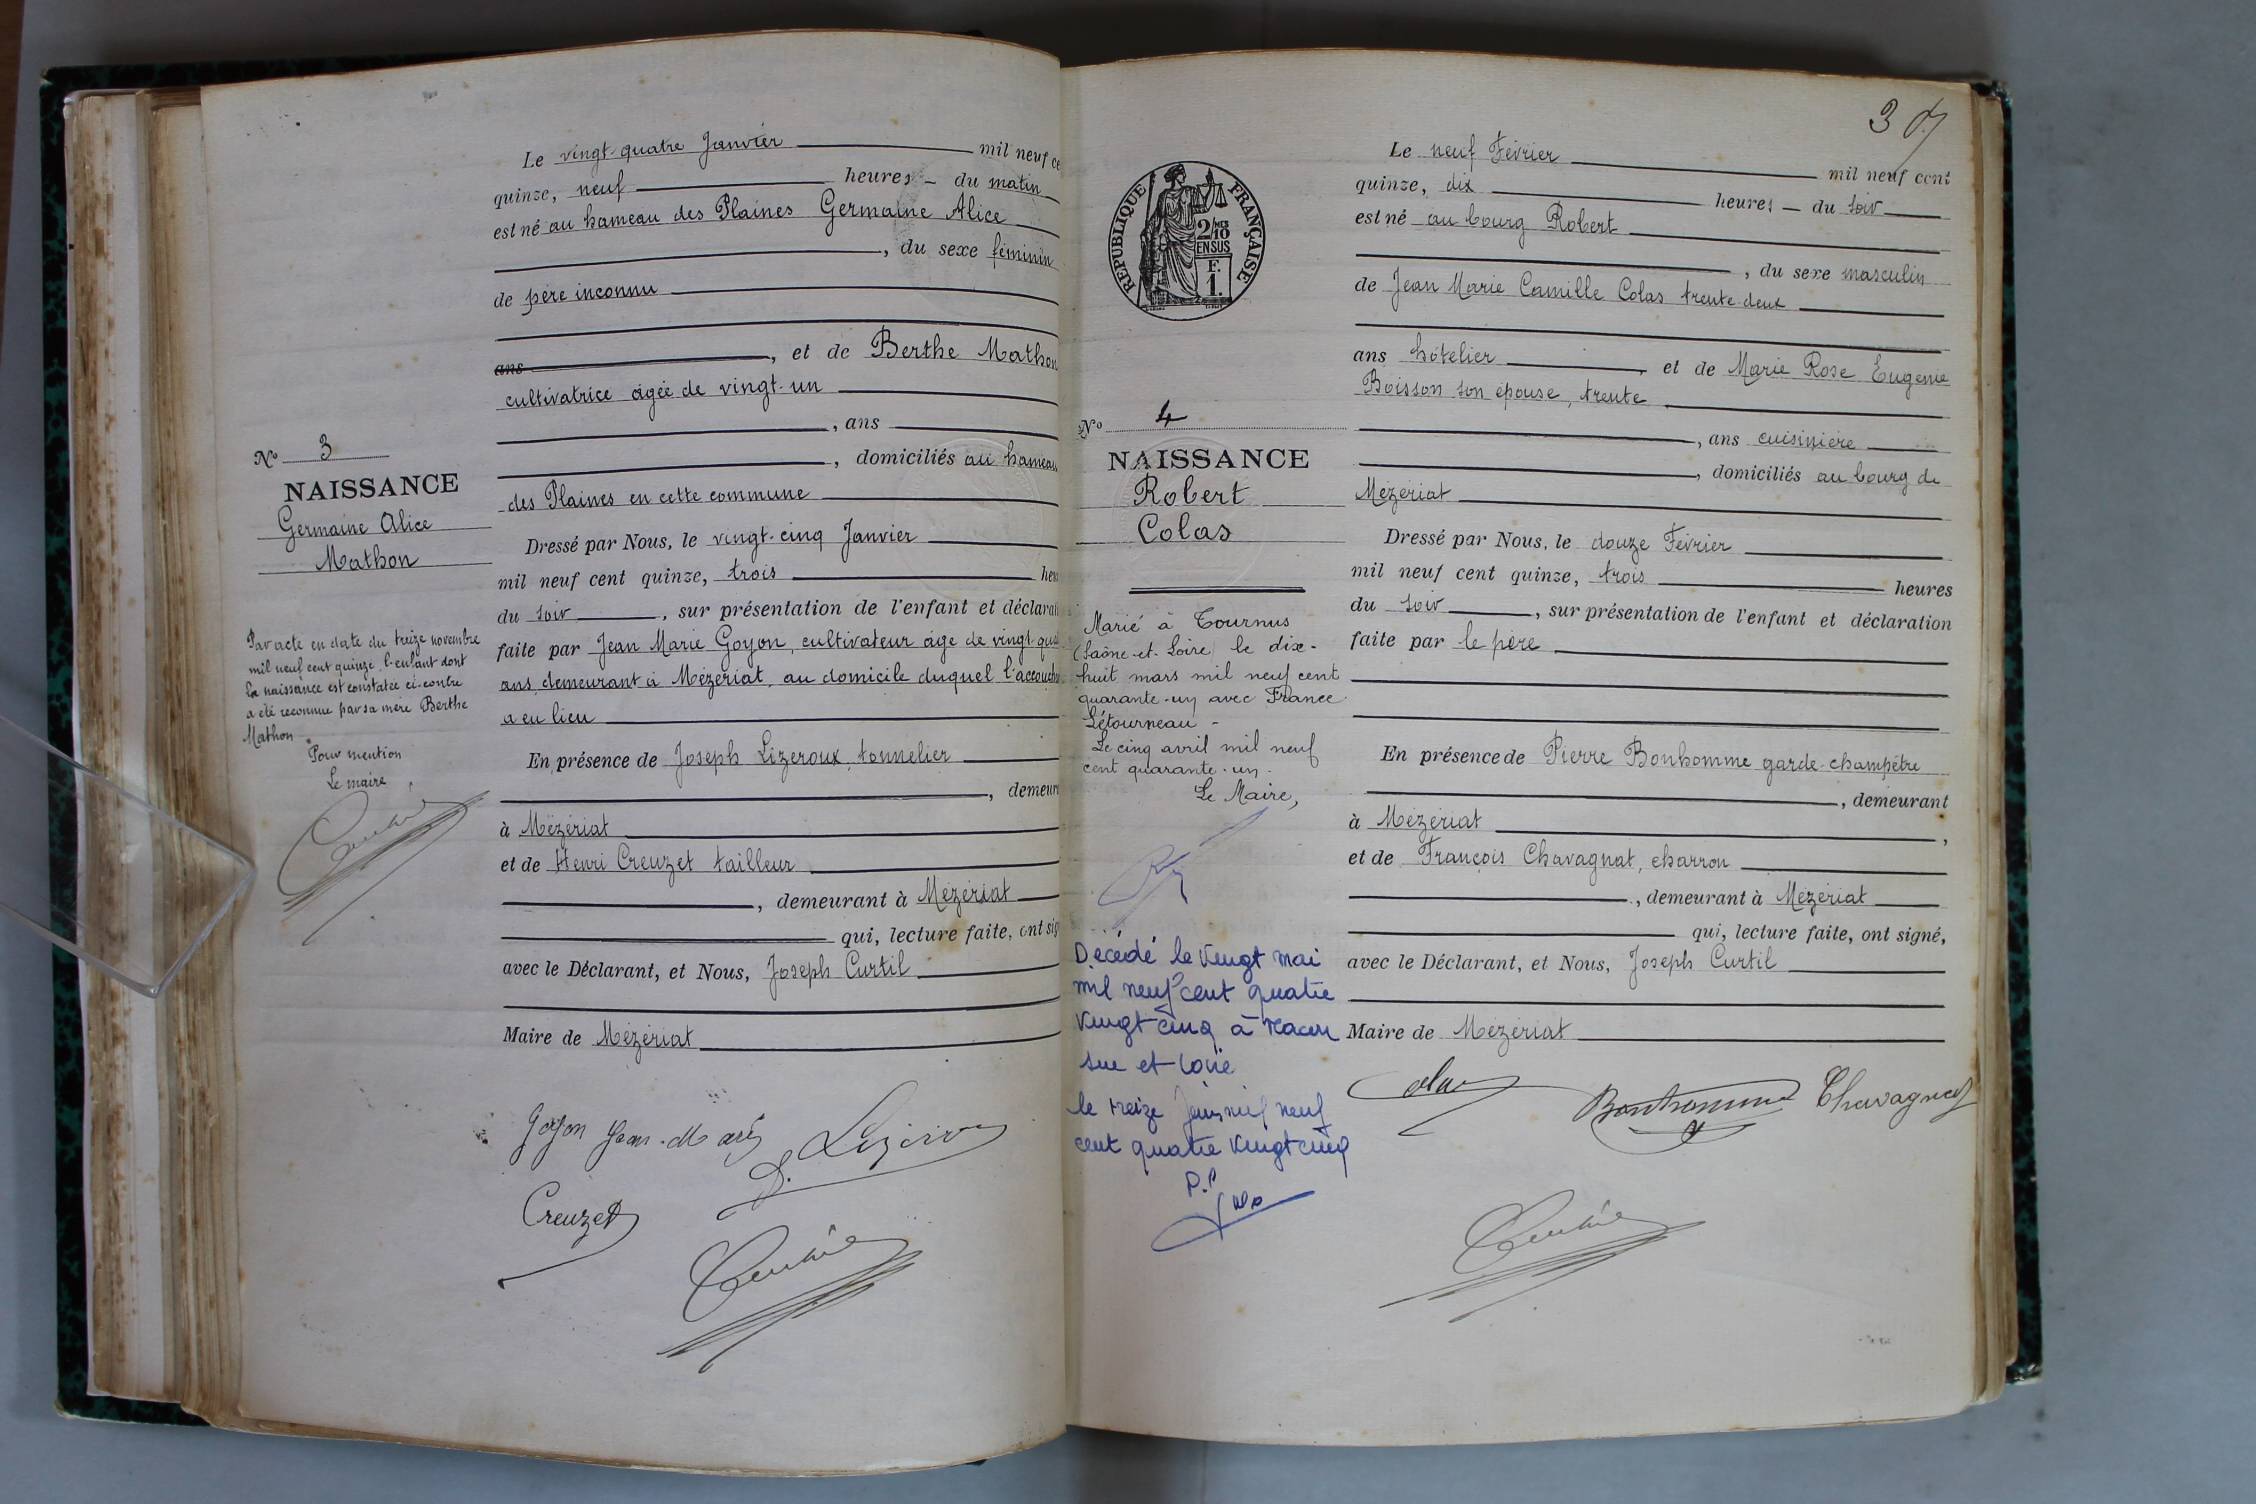 Le vingt-quatre Janvier mil neuf ce
quinze, neuf heures - du matin
est né au hameau des Plaines Germaine Alice
, du sexe féminin
de père inconnu
ans , et de Berthe Mathon
cultivatrice âgée de vingt-un
, ans
, domiciliés au hameau
des Plaines en cette commune
Dressé par Nous, le vingt-cinq Janvier
mil neuf cent quinze, trois heu
du soir , sur présentation de l'enfant et déclarati
faite par Jean Marie Goyon, cultivateur âgé de vingt qua
ans demeurant à Mézériat, au domicile duquel l'accouche
a eu lieu
En présence de Joseph Lézeroux, tonnelier
, demeur
à Mézériat
et de Henri Creuzet tailleur
, demeurant à Mézériat
qui, lecture faite, ont sig
avec le Déclarant, et Nous, Joseph Curtil
Maire de Mézériat
Goyon Jean-Marie
Creuzet
No 3
NAISSANCE
Germaine Alice
Mathon
Par acte en date du treize novembre
mil neuf cent quinze, l'enfant dont
la naissance est constatée ci-contre
a été reconnue par sa mère Berthe
Mathon.
Pour mention
Le maire
3
RÉPUBLIQUE FRANÇAISE
2/MES
10
EN SUS
F.
1.
No 4
NAISSANCE
Robert
Colas
Marié à Tournus
(Saône-et-Loire) le dix-
huit mars mil neuf cent
quarante-un avec France
Létourneau -
Le cinq avril mil neuf
cent quarante-un.
Le Maire,
Décédé le vingt mai
mil neuf cent quatre
vingt cinq à Macon
et Loire
le treize Juin mil neuf
cent quatre vingt cinq
Le neuf Février mil neuf cent
quinze, dix heures - du soir
est né au bourg Robert
, du sexe masculin
de Jean Marie Camille Colas trente-deux
ans hôtelier et de Marie Rose Eugénie
Boisson son épouse, trente
, ans cuisinière
, domiciliés au bourg de
Mézériat
Dressé par Nous, le douze Février
mil neuf cent quinze, trois heures
du soir , sur présentation de l'enfant et déclaration
faite par le père
En présence de Pierre Bonhomme garde-champêtre
, demeurant
à Mézériat ,
et de François Chavagnat, charron
, demeurant à Mézériat
qui, lecture faite, ont signé,
avec le Déclarant, et Nous, Joseph Curtil
Maire de Mézériat
Colas Bonhomme Chavagnat